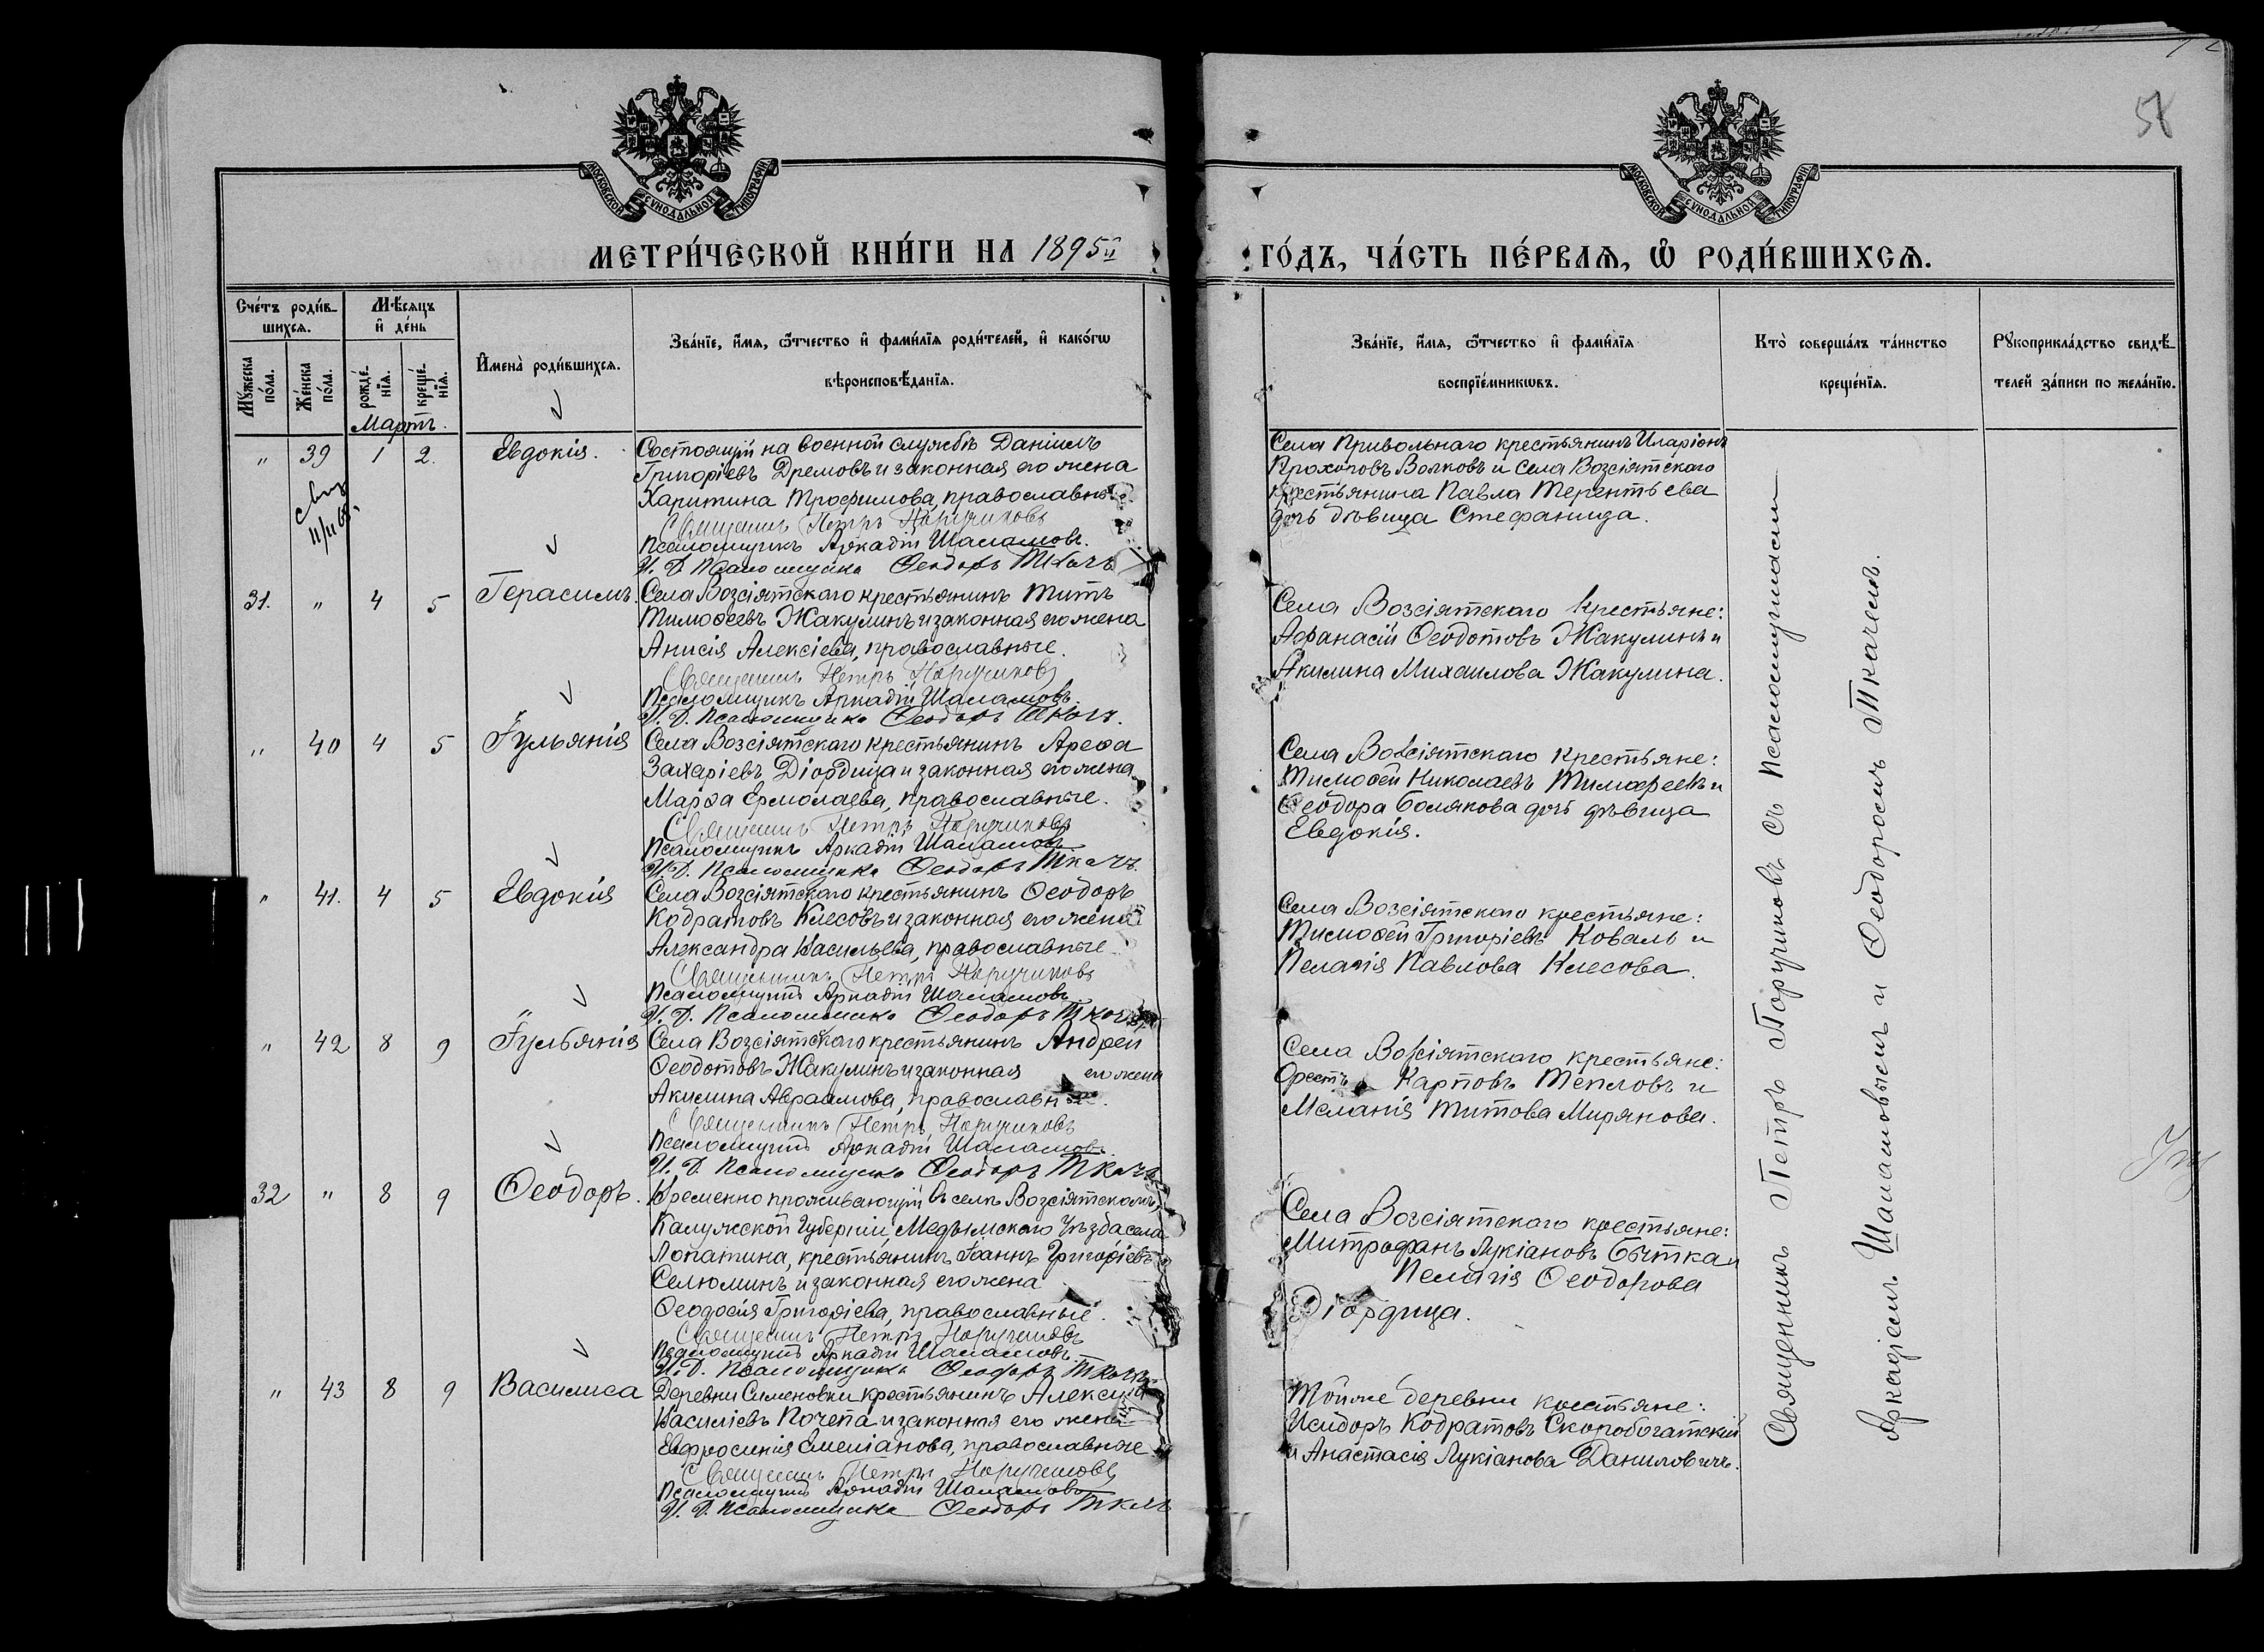 58
МОСКОВСКОЙ СУНОДАЛЬНОЙ ТИПОГРАФІИ
МОСКОВСКОЙ СУНОДАЛЬНОЙ ТИПОГРАФІИ
МЕТРИ́ЧЕСКОЙ КНИ́ГИ НА 1895й
ГО́ДЪ, ЧА́СТЬ ПЕ́РВАѦ, Ѡ҆ РОДИ́ВШИХСѦ.
Сче́тъ роди́в-
шихсѧ.
Мꙋ́жеска по́ла.
Же́нска по́ла.
Мѣ́сѧцъ
и҆ де́нь
рожде́-нїѧ.
креще́-нїѧ.
И҆мена̀ роди́вшихсѧ.
Зва́нїе, и҆́мѧ, ѻ҆́тчество и҆ фами́лїѧ роди́телей, и҆ како́гѡ
вѣроисповѣ́данїѧ.
Зва́нїе, и҆́мѧ, ѻ҆́тчество и҆ фами́лїѧ
воспрїе́мникѡвъ.
Кто̀ соверша́лъ та́инство
креще́нїѧ.
Рꙋкоприкла́дство свидѣ́-
телей за́писи по жела́нїю.
Мартъ.
" 39 1 2. Евдокія.
Состоящій на военной службѣ Даніилъ
Григоріевъ Дремовъ и законная его жена
Харитина Трофимова, православные.
Священникъ Петръ Поручиковъ
Псаломщикъ Аркадій Шаламовъ.
И. Д. Псаломщика Ѳеодоръ Ткачъ
Села Привольнаго крестьянинъ Иларіонъ
Прохоровъ Волковъ и села Возсіятскаго
крестьянина Павла Терентьева
дочь дѣвица Стефанида.
31. " 4 5 Герасимъ.
Села Возсіятскаго крестьянинъ Титъ
Тимоѳеевъ Жакулинъ и законная его жена
Анисія Алексіева, православные.
Священникъ Петръ Поручиковъ
Псаломщикъ Аркадій Шаламовъ.
И. Д. Псаломщика Ѳеодоръ Ткачъ.
Села Возсіятскаго крестьяне:
Аѳанасій Ѳеодотовъ Жакулинъ и
Акилина Михаилова Жакулина.
" 40 4 5 Іульянія
Села Возсіятскаго крестьянинъ Ареѳа
Захаріевъ Діордица и законная его жена
Марѳа Ермолаева, православные.
Священникъ Петръ Поручиковъ
Псаломщикъ Аркадій Шаламовъ
И. Д. Псаломщика Ѳеодоръ Ткачъ.
Села Возсіятскаго крестьяне:
Тимоѳей Николаевъ Тимофеевъ и
Ѳеодора Болякова дочь дѣвица
Евдокія.
" 41. 4 5 Евдокія
Села Возсіятскаго крестьянинъ Ѳеодоръ
Кодратовъ Клесовъ и законная его жена
Александра Васильева, православные.
Священникъ Петръ Поручиковъ
Псаломщикъ Аркадій Шаламовъ.
И. Д. Псаломщика Ѳеодоръ Ткачъ
Села Возсіятскаго крестьяне:
Тимоѳей Григоріевъ Коваль и
Пелагія Павлова Клесова.
" 42 8 9 Іульянія
Села Возсіятскаго крестьянинъ Андрей
Ѳеодотовъ Жакулинъ и законная его жена
Акилина Авраамова, православные.
Священникъ Петръ Поручиковъ
Псаломщикъ Аркадій Шаламовъ.
И. Д. Псаломщика Ѳеодоръ Ткачъ
Села Возсіятскаго крестьяне:
Орестъ Карповъ Тепловъ и
Меланія Титова Мирянова.
32 " 8 9 Ѳеодоръ.
Временно проживающій въ селѣ Возсіятскомъ,
Калужской Губерніи, Медынскаго Уѣзда села
Лопатина, крестьянинъ Іоаннъ Григоріевъ
Селюминъ и законная его жена
Ѳеодосія Григоріева, православные.
Священникъ Петръ Поручиковъ
Псаломщикъ Аркадій Шаламовъ.
И. Д. Псаломщика Ѳеодоръ Ткачъ
Села Возсіятскаго крестьяне:
Митрофанъ Лукіановъ Бытка и
Пелагія Ѳеодорова
Діордица.
" 43 8 9 Василиса
Деревни Сименовки крестьянинъ Алексій
Василіевъ Почепа и законная его жена
Евфросинія Емеліанова, православные
Священникъ Петръ Поручиковъ
Псаломщикъ Аркадій Шаламовъ
И. Д. Псаломщика Ѳеодоръ Ткачъ
Тойже деревни крестьяне:
Исидоръ Кодратовъ Скоробогатскій
и Анастасія Лукіанова Даниловичъ.
Священникъ Петръ Поручиковъ съ псаломщиками
Аркадіемъ Шаламовымъ и Ѳеодоромъ Ткачемъ.